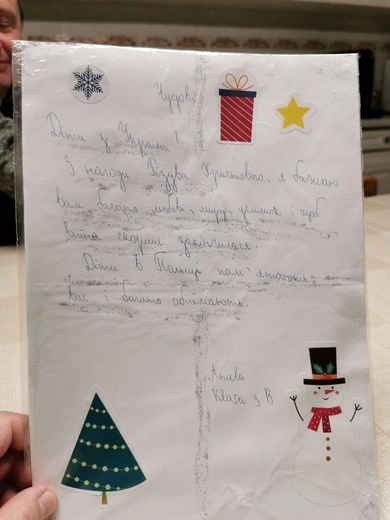 Чудові
Діти з України!
З нагоди Різдва Христового, я бажаю
вам багато любові, миру, усмішок і щоб
війна скоріше закінчилася.
Діти в Польщі пам'ятають
вас і багато обіймають.
Aniela
Klasa 3 B